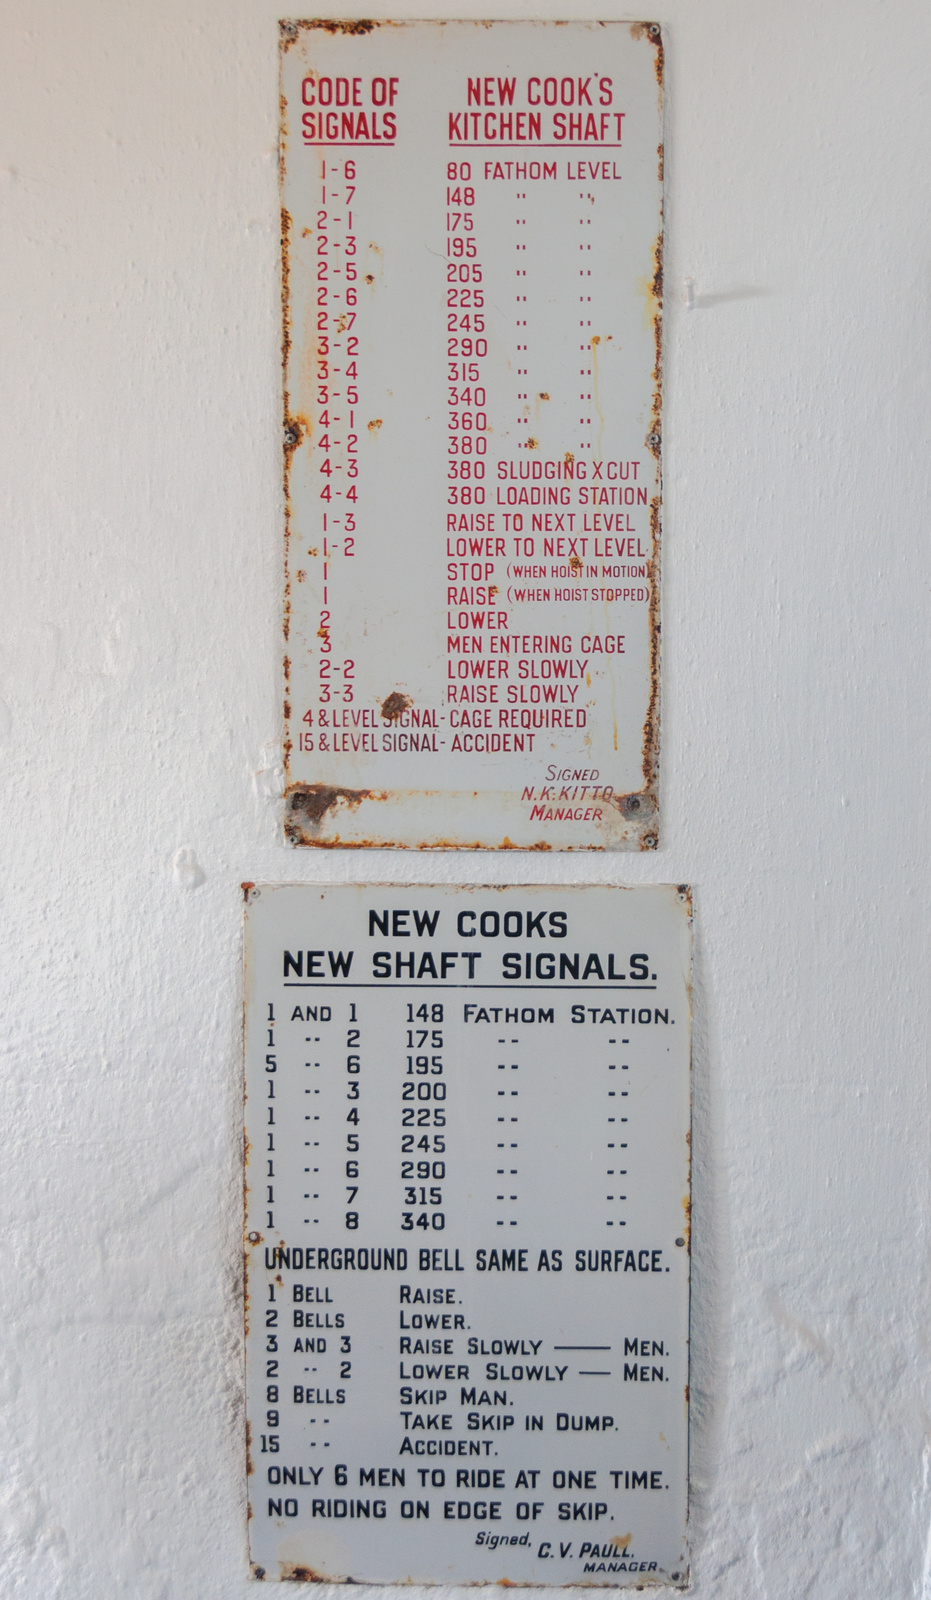 CODE OF SIGNALS NEW COOK'S KITCHEN SHAFT
1-6 80 FATHOM LEVEL
1-7 148 " "
2-1 175 " "
2-3 195 " "
2-5 205 " "
2-6 225 " "
2-7 245 " "
3-2 290 " "
3-4 315 " "
3-5 340 " "
4-1 360 " "
4-2 380 " "
4-3 380 SLUDGING X CUT
4-4 380 LOADING STATION
1-3 RAISE TO NEXT LEVEL
1-2 LOWER TO NEXT LEVEL
1 STOP (WHEN HOIST IN MOTION)
1 RAISE (WHEN HOIST STOPPED)
2 LOWER
3 MEN ENTERING CAGE
2-2 LOWER SLOWLY
3-3 RAISE SLOWLY
4 & LEVEL SIGNAL- CAGE REQUIRED
15 & LEVEL SIGNAL- ACCIDENT
SIGNED
N.K.KITTO
MANAGER
NEW COOKS
NEW SHAFT SIGNALS.
1 AND 1 148 FATHOM STATION.
1 -- 2 175 -- --
5 -- 6 195 -- --
1 -- 3 200 -- --
1 -- 4 225 -- --
1 -- 5 245 -- --
1 -- 6 290 -- --
1 -- 7 315 -- --
1 -- 8 340 -- --
UNDERGROUND BELL SAME AS SURFACE.
1 BELL RAISE.
2 BELLS LOWER.
3 AND 3 RAISE SLOWLY — MEN.
2 -- 2 LOWER SLOWLY — MEN.
8 BELLS SKIP MAN.
9 -- TAKE SKIP IN DUMP.
15 -- ACCIDENT.
ONLY 6 MEN TO RIDE AT ONE TIME.
NO RIDING ON EDGE OF SKIP.
Signed, C.V. PAULL.
MANAGER.